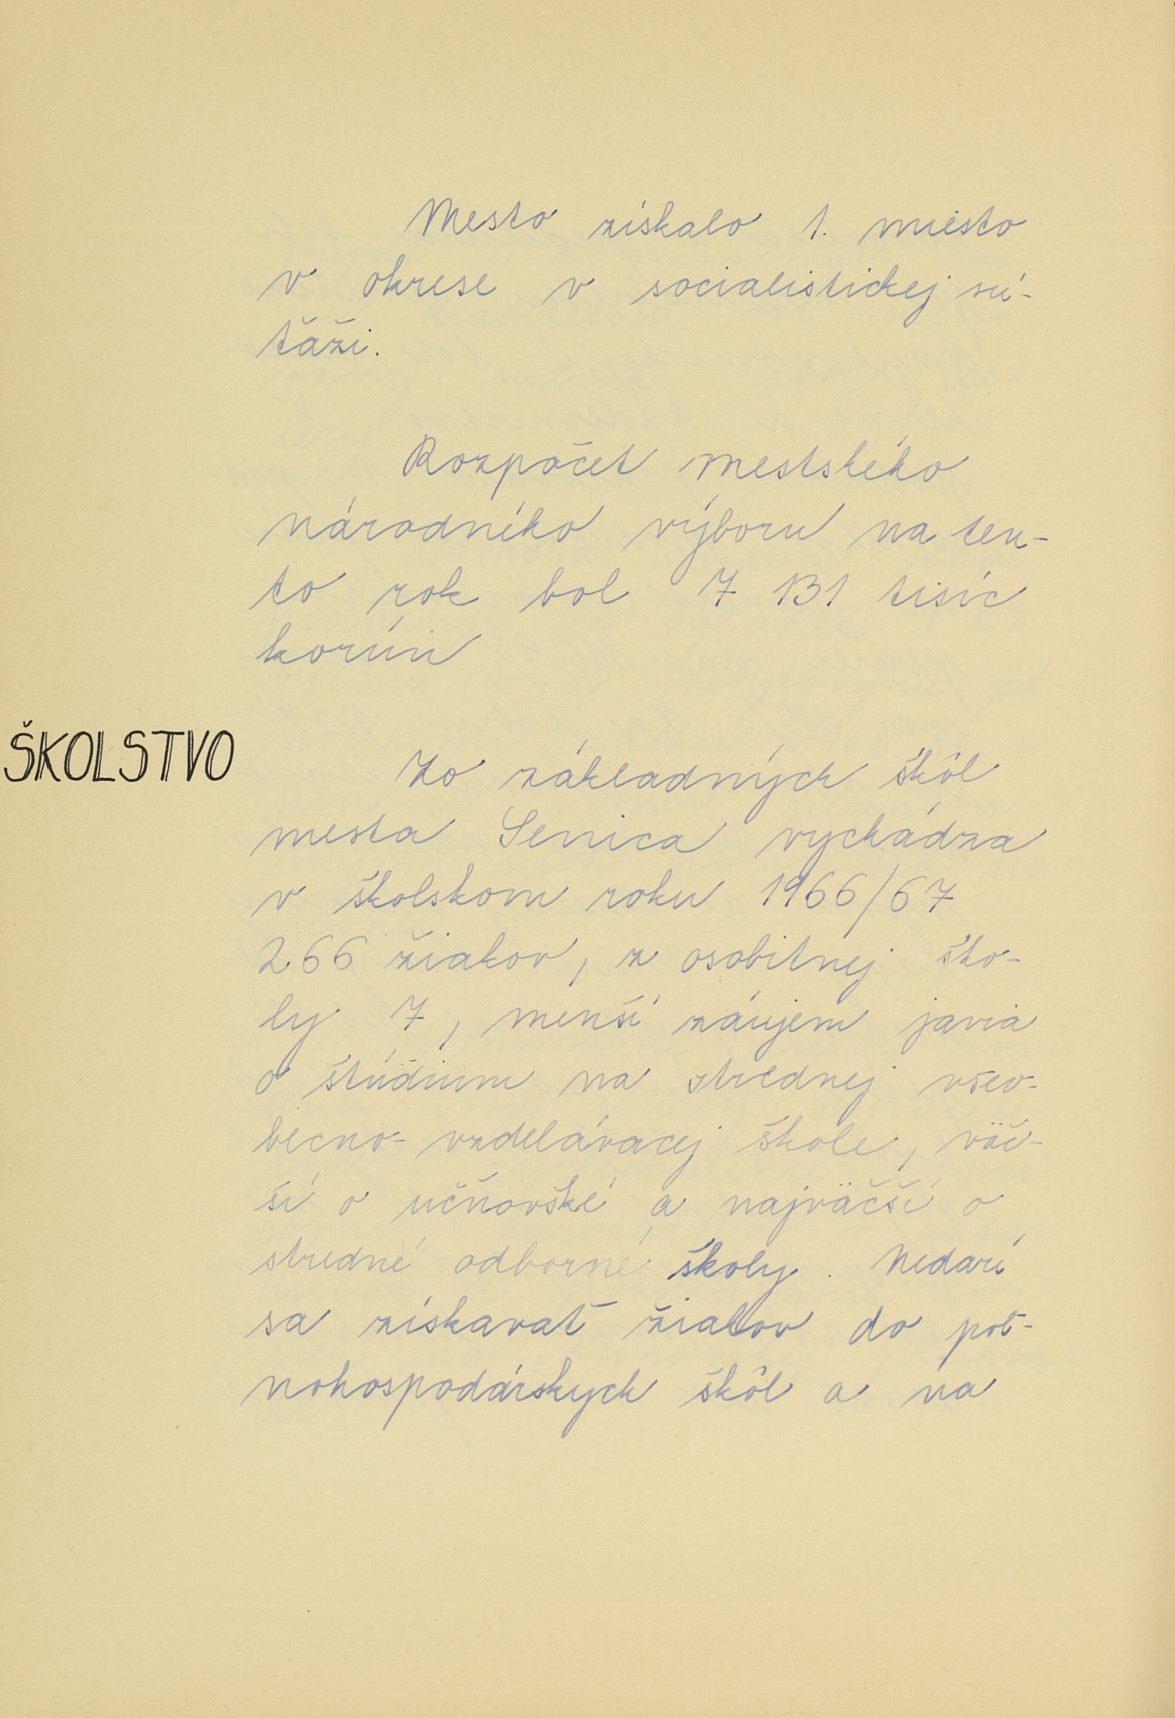 Mesto získalo 1. miesto
v okrese v socialistickej sú-
ťaži.
Rozpočet mestského
národného výboru na ten-
to rok bol 7 131 tisíc
korún
ŠKOLSTVO
Zo základných škôl
mesta Senica vychádza
v školskom roku 1966/67
266 žiakov, z osobitnej ško-
ly 7, menší záujem javia
o štúdium na strednej všeo-
becno-vzdelávacej škole, väč-
ší o učňovské a najväčší o
stredné odborné školy. Nedarí
sa získavať žiakov do poľ-
nohospodárskych škôl a na